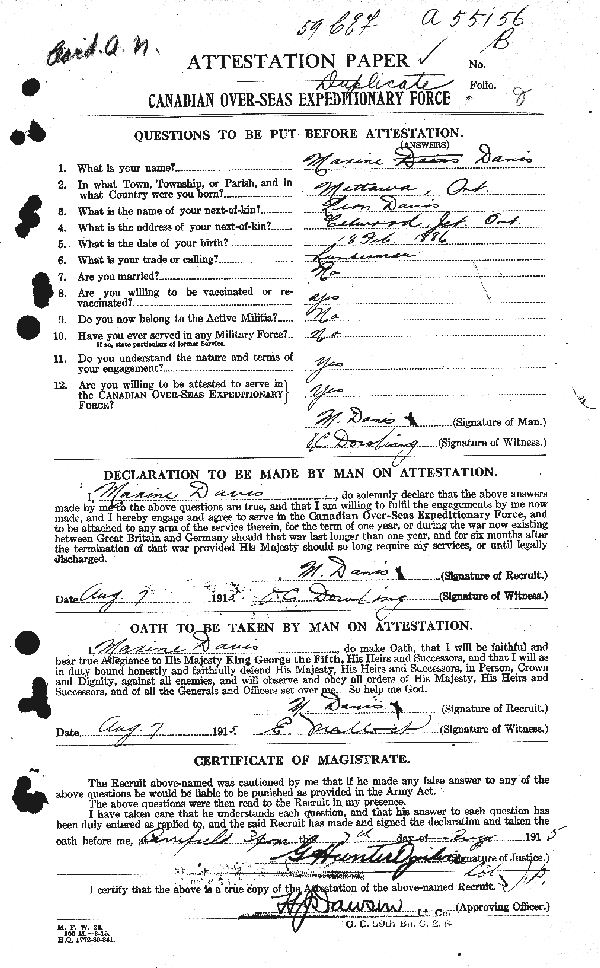 59 A 55156
B
Card. A. N.
ATTESTATION PAPER No.
Duplicate Folio. 8
CANADIAN OVER-SEAS EXPEDITIONARY FORCE
QUESTIONS TO BE PUT BEFORE ATTESTATION.
(ANSWERS)
1. What is your name? Maxime Davis
2. In what Town, Township, or Parish, and in what Country were you born? Mattawa, Ont
3. What is the name of your next-of-kin? Leon Davis
4. What is the address of your next-of-kin? Jct. Ont
5. What is the date of your birth? 18 Feb 1886
6. What is your trade or calling?
7. Are you married? No
8. Are you willing to be vaccinated or re-vaccinated? yes
9. Do you now belong to the Active Militia? No
10. Have you ever served in any Military Force? No
If so, state particulars of former Service.
11. Do you understand the nature and terms of your engagement? Yes
12. Are you willing to be attested to serve in the CANADIAN OVER-SEAS EXPEDITIONARY FORCE? Yes
M. Davis (Signature of Man.)
(Signature of Witness.)
DECLARATION TO BE MADE BY MAN ON ATTESTATION.
I, Maxime Davis, do solemnly declare that the above answers
made by me to the above questions are true, and that I am willing to fulfil the engagements by me now
made, and I hereby engage and agree to serve in the Canadian Over-Seas Expeditionary Force, and
to be attached to any arm of the service therein, for the term of one year, or during the war now existing
between Great Britain and Germany should that war last longer than one year, and for six months after
the termination of that war provided His Majesty should so long require my services, or until legally
discharged.
M Davis (Signature of Recruit.)
Date Aug 7 1915. (Signature of Witness.)
OATH TO BE TAKEN BY MAN ON ATTESTATION.
I, Maxime Davis, do make Oath, that I will be faithful and
bear true Allegiance to His Majesty King George the Fifth, His Heirs and Successors, and that I will as
in duty bound honestly and faithfully defend His Majesty, His Heirs and Successors, in Person, Crown
and Dignity, against all enemies, and will observe and obey all orders of His Majesty, His Heirs and
Successors, and of all the Generals and Officers set over me. So help me God.
M. Davis (Signature of Recruit.)
Date Aug 7 1915. (Signature of Witness.)
CERTIFICATE OF MAGISTRATE.
The Recruit above-named was cautioned by me that if he made any false answer to any of the
above questions he would be liable to be punished as provided in the Army Act.
The above questions were then read to the Recruit in my presence.
I have taken care that he understands each question, and that his answer to each question has
been duly entered as replied to, and the said Recruit has made and signed the declaration and taken the
oath before me, at this 7th day of Aug 1915
G Hunter (Signature of Justice.)
Col J.P.
I certify that the above is a true copy of the Attestation of the above-named Recruit.
H J Dawson Lt. Col. (Approving Officer.)
O. C. 59th Bn. C. E. F.
M. F. W. 23.
H.Q. 1772-39-841.